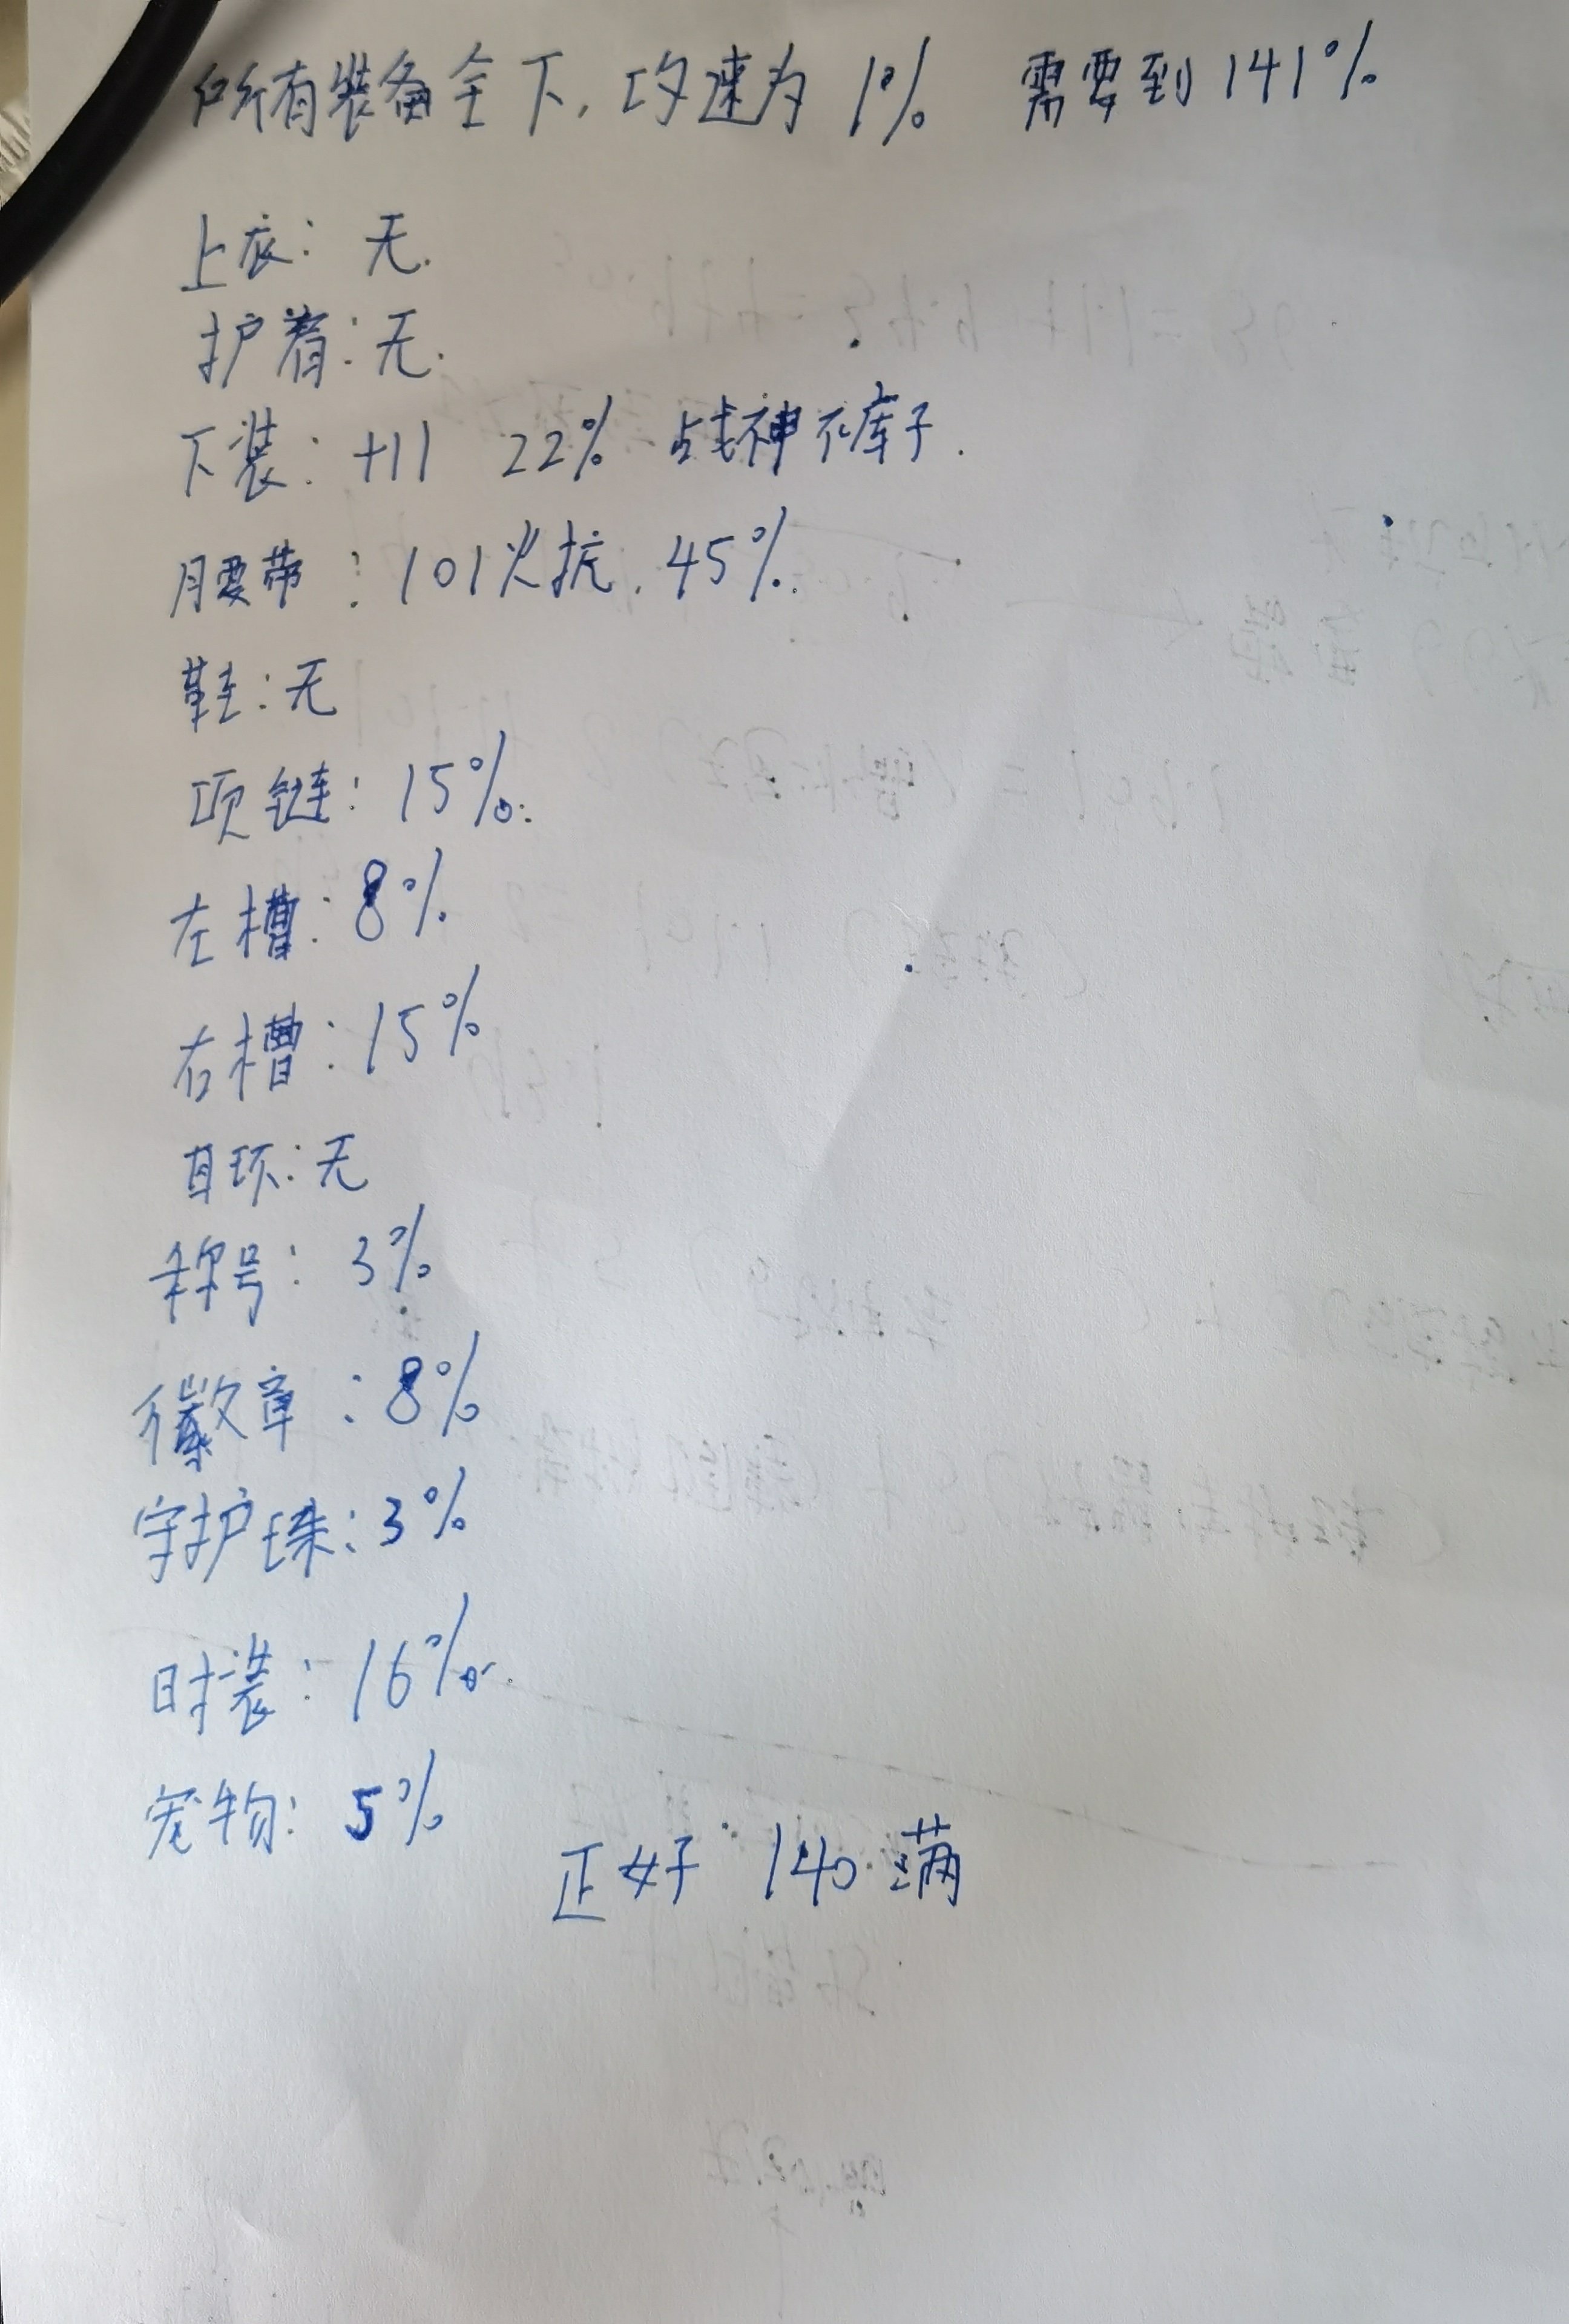 所有装备全下, 攻速为 1% 需要到 141%
上衣: 无.
护肩: 无.
下装: +11 22% 战神裤子.
腰带: 101火抗. 45%.
鞋: 无
项链: 15%.
左槽: 8%
右槽: 15%
耳环: 无
称号: 3%
徽章: 8%
守护珠: 3%
时装: 16%.
宠物: 5%
正好 140 满